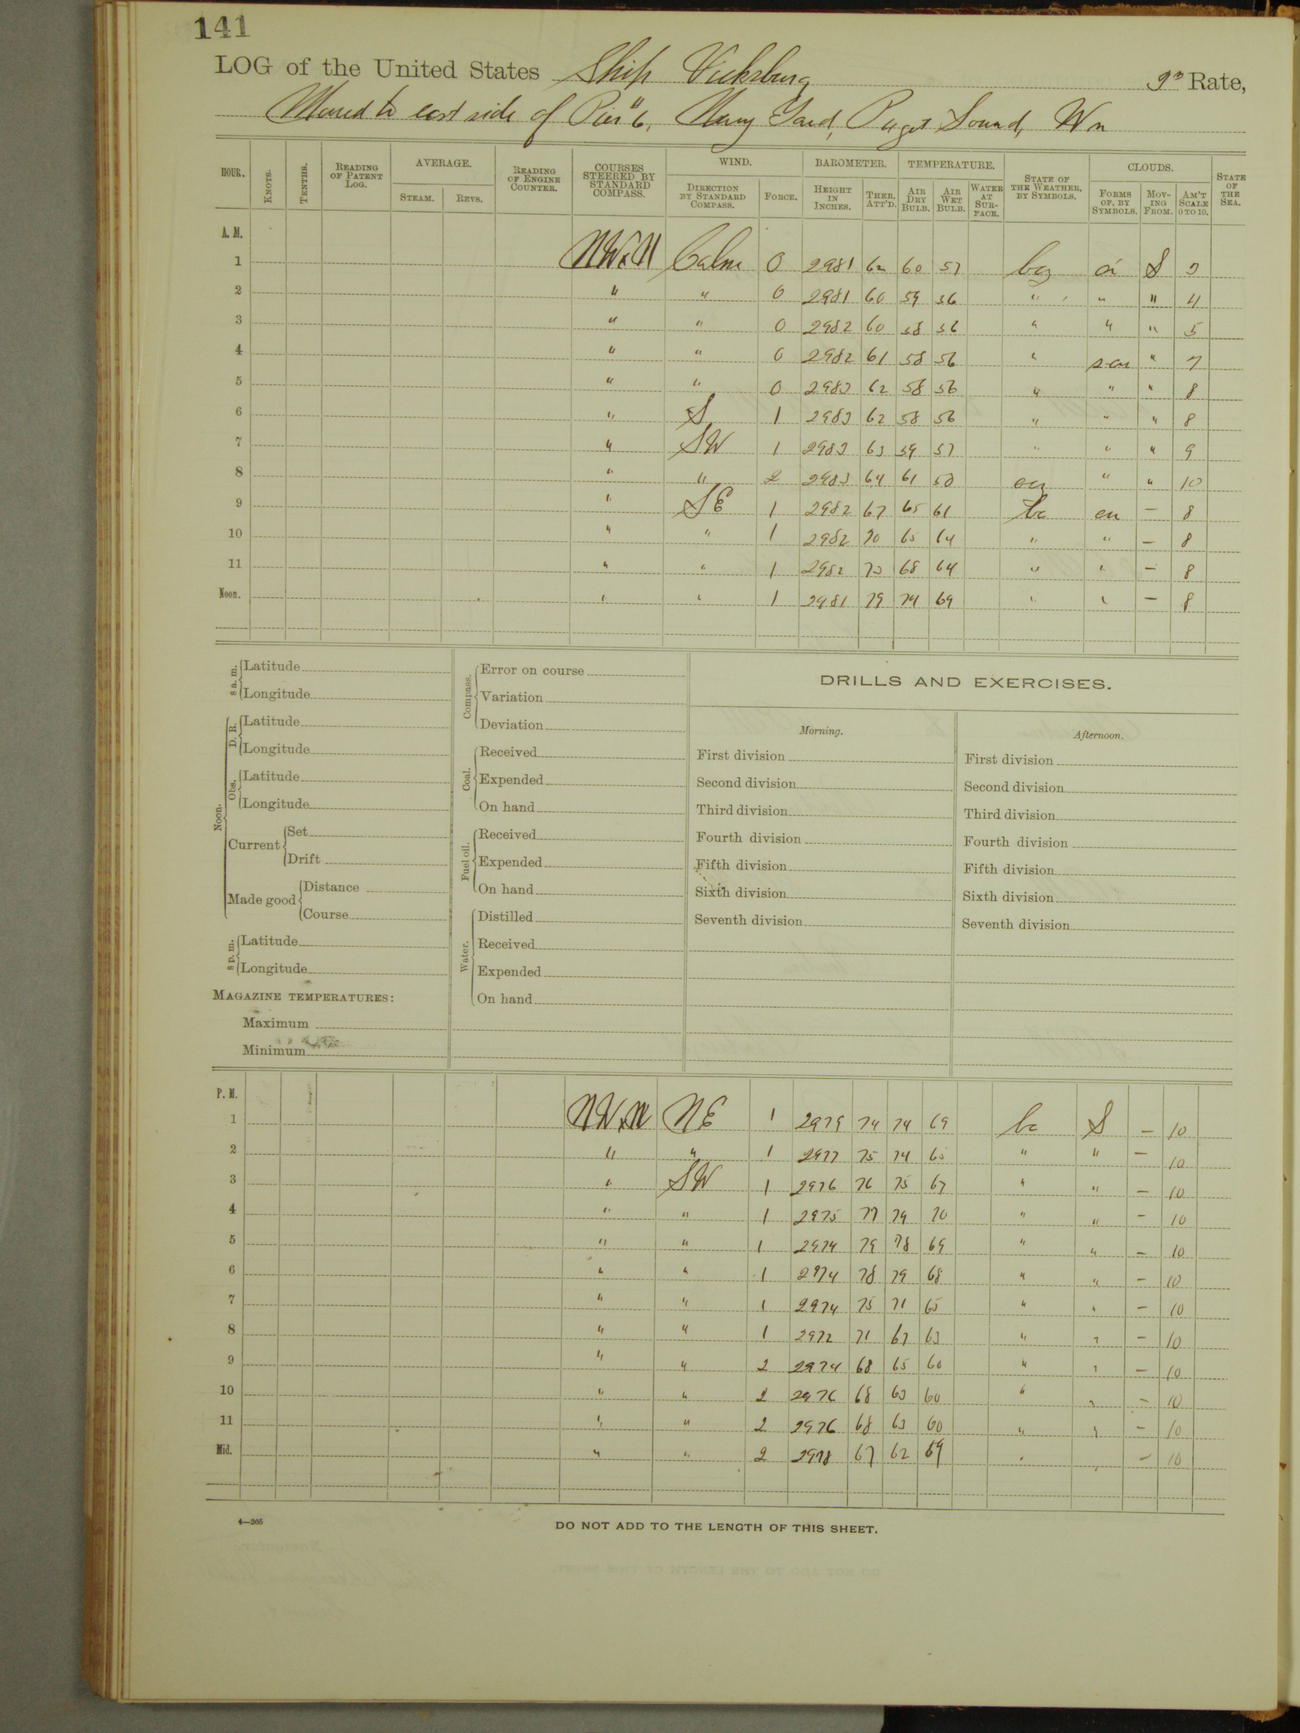 141
LOG of the United States Ship Vicksburg 3rd Rate,
Moored to east side of Pier #6, Navy Yard, Puget Sound, Wn
HOUR. KNOTS. TENTHS. READING OF PATENT LOG. AVERAGE. STEAM. REVS. READING OF ENGINE COUNTER. COURSES STEERED BY STANDARD COMPASS. WIND. DIRECTION BY STANDARD COMPASS. FORCE. BAROMETER. HEIGHT IN INCHES. THER. ATT'D. TEMPERATURE. AIR DRY BULB. AIR WET BULB. WATER AT SURFACE. STATE OF THE WEATHER, BY SYMBOLS. CLOUDS. FORMS OF, BY SYMBOLS. MOVING FROM. AM'T SCALE 0 TO 10. STATE OF THE SEA.
A. M.
1 NWxN Calm 0 2981 62 60 57 bcz ci S 3
2 " " 0 2981 60 59 56 " " " 4
3 " " 0 2982 60 58 56 " " " 5
4 " " 0 2982 61 58 56 " s cu " 7
5 " " 0 2983 62 58 56 " " " 8
6 " S 1 2983 62 58 56 " " " 8
7 " SW 1 2983 63 59 57 " " " 9
8 " " 2 2983 64 61 58 " " 10
9 " SE 1 2982 67 65 61 bc cu — 8
10 " " 1 2982 70 65 64 " " — 8
11 " " 1 2982 73 68 64 " " — 8
Noon. " " 1 2981 79 74 69 " " — 8
8 a.m. Latitude
Longitude
Noon. D. R. Latitude
Longitude
Obs. Latitude
Longitude
Current Set
Drift
Made good Distance
Course
8 p.m. Latitude
Longitude
MAGAZINE TEMPERATURES:
Maximum
Minimum
Compass. Error on course
Variation
Deviation
Coal. Received
Expended
On hand
Fuel oil. Received
Expended
On hand
Water. Distilled
Received
Expended
On hand
DRILLS AND EXERCISES.
Morning.
First division
Second division
Third division
Fourth division
Fifth division
Sixth division
Seventh division
Afternoon.
First division
Second division
Third division
Fourth division
Fifth division
Sixth division
Seventh division
P. M.
1 NWxN NE 1 2979 74 74 69 bc S — 10
2 " " 1 2977 75 74 65 " " — 10
3 " SW 1 2976 76 75 67 " " — 10
4 " " 1 2975 77 79 70 " " — 10
5 " " 1 2974 79 78 69 " " — 10
6 " " 1 2974 78 79 68 " " — 10
7 " " 1 2974 75 71 65 " " — 10
8 " " 1 2972 71 67 63 " " — 10
9 " " 2 2974 68 65 60 " " — 10
10 " " 2 2976 68 63 60 " " — 10
11 " " 2 2976 68 63 60 " " — 10
Mid. " " 2 2978 67 62 59 " " — 10
4—265
DO NOT ADD TO THE LENGTH OF THIS SHEET.